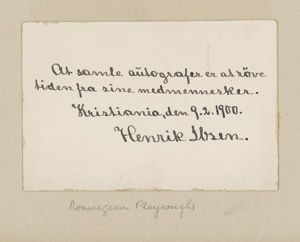 At samle autografer er at röve
tiden fra sine medmennesker.
Kristiania, den 9.2.1900.
Henrik Ibsen.
Norwegian Playwright